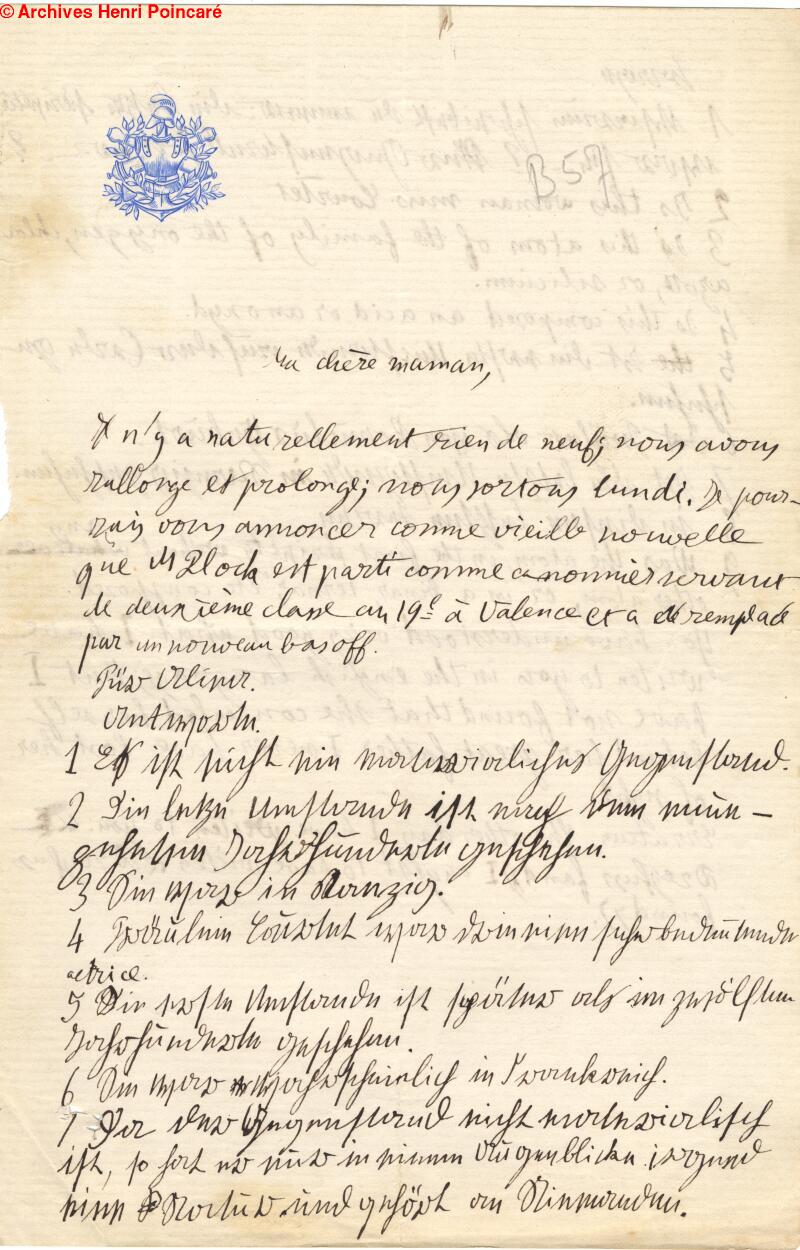 © Archives Henri Poincaré
B 57
Ma chère maman,
Il n'y a naturellement rien de neuf; nous avons
rallonge et prolonge; nous sortons lundi. Je pour-
rais vous annoncer comme vieille nouvelle
que M Bloch est parti comme canonnier servant
de deuxième classe au 19e à Valence et a été remplacé
par un nouveau basoff.
Für Aline.
Antworte.
1 Es ist nicht ein materialiches Gegenstand.
2 Die letze Umstande ist nach dem neun-
zehnten Jahrhunderte geschehen.
3 Sie war in Nanzig.
4 Fräulein Courtet war darin eine sehr bedeutende
actrice.
5 Die erste Umstande ist später als im zwölften
Jahrhunderte geschehen.
6 Sie war wahrscheinlich in Frankreich.
7 Da der Gegenstand nicht materialisch
ist, so hat er nur in einem Augenblicke irgend
eine Natur und gehört an Niemanden.